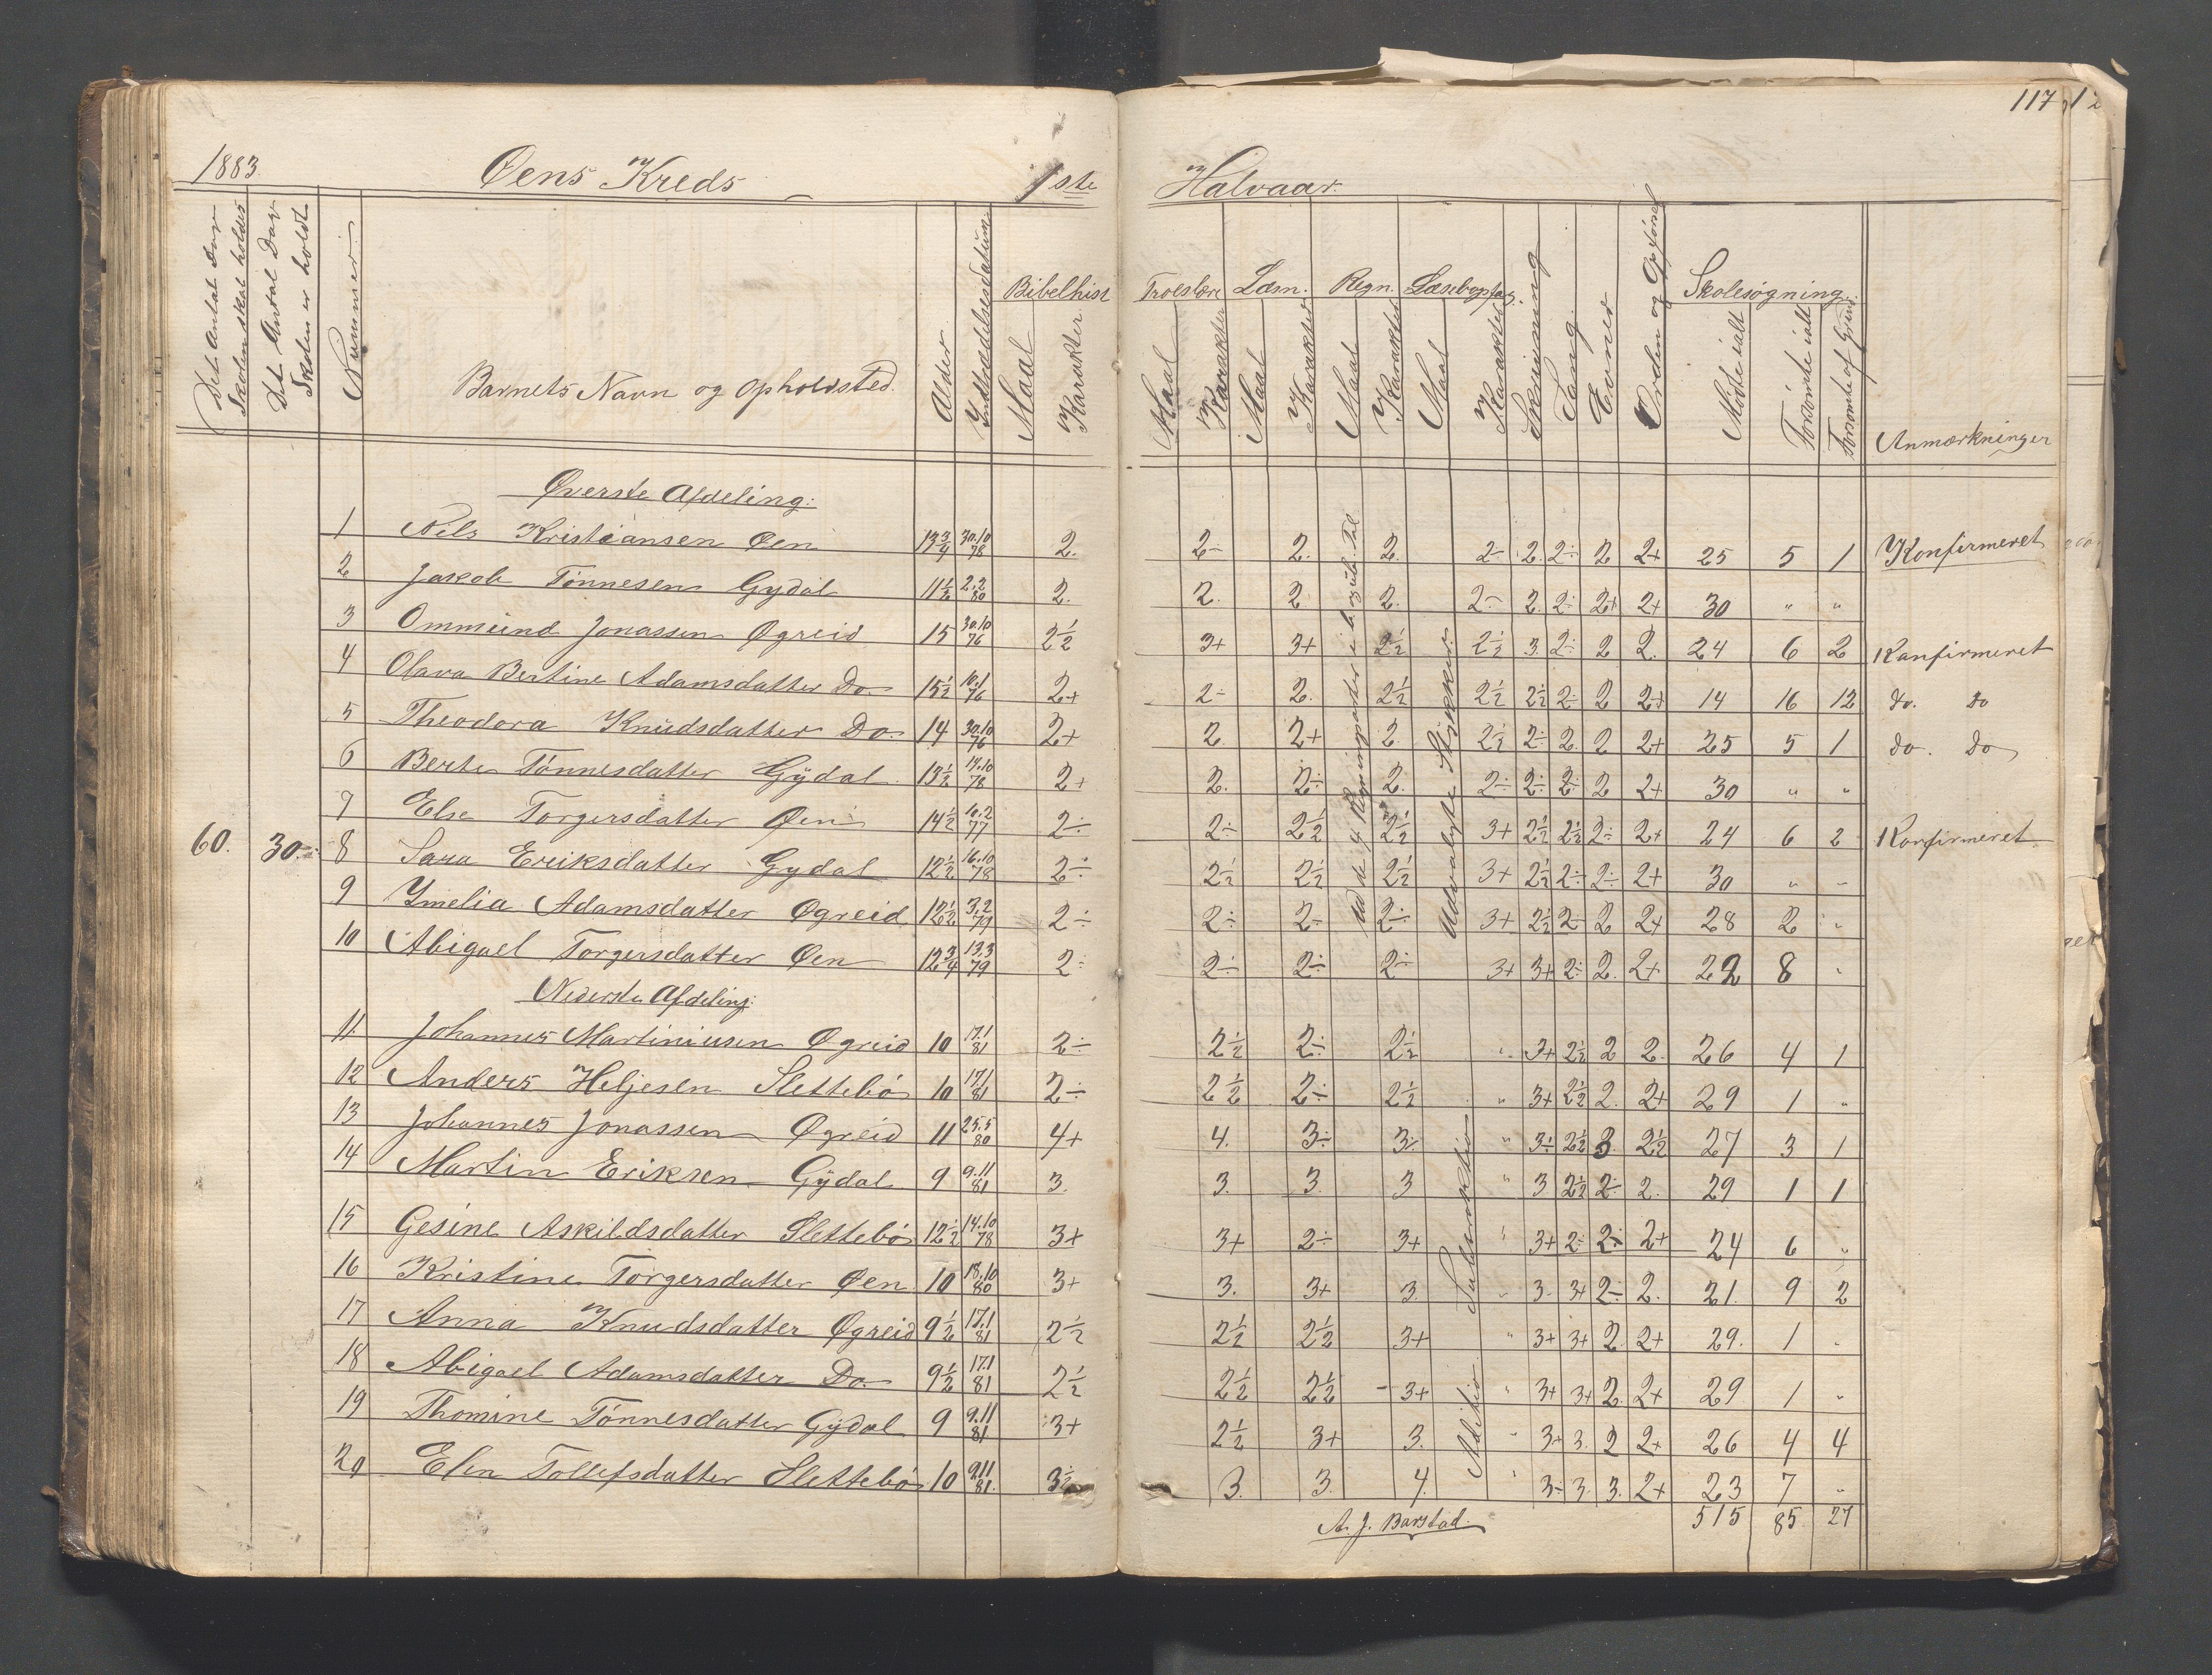 117
1883. Øens Kreds 1ste Halvaar.
Det Antal Dage Skolen skal holdes
Det Antal Dage Skolen er holdt
Nummer.
Barnets Navn og Opholdsted.
Alder
Indtrædelsesdatum.
Bibelhist Maal Karakter.
Troeslære Maal Karakter
Læsn. Maal Karakter
Regn. Maal Karakter
Læsebogstag. Maal Karakter
Skrivning
Sang.
Evner
Orden og Opførsel
Skolesøgning. Mødte ialt Forsømte ialt Forsømte af Grund
Anmærkninger
Øverste Afdeling:
1 Nils Kristiansen Øen 13 3/4 30.10 78 2. 2÷ 2. 2. 2÷ 2. 2÷ 2 2+ 25 5 1 Konfirmeret
2 Jakob Tønnesen Gydal 11 1/2 2.2 80 2. 2. 2 2. 2÷ 2. 2÷ 2+ 2+ 30 " "
3 Ommund Jonassen Øgreid 15 30.10 76 2 1/2 3+ 3+ 2 1/2 2 1/2 3. 2÷ 2 2. 24 6 2 Konfirmeret
4 Olava Bertine Adamsdatter Do. 15 1/2 10.1 76 2+ 2÷ 2. 2 1/2 2 1/2 2 1/2 2÷ 2 2+ 14 16 12 do. do
5 Theodora Knudsdatter Do. 14 30.10 76 2+ 2. 2+ 2. 2 1/2 2÷ 2. 2 2+ 25 5 1 do. do
6 Berte Tønnesdatter Gydal 13 1/2 14.10 78 2+ 2. 2÷ 2. 2÷ 2÷ 2÷ 2 2+ 30 " "
7 Else Torgersdatter Øen 14 1/2 10.2 77 2÷ 2÷ 2 1/2 2 1/2 3+ 2 1/2 2 1/2 2÷ 2+ 24 6 2 Konfirmeret
60. 30. 8 Sara Eriksdatter Gydal 12 1/2 16.10 78 2÷ 2 1/2 2 1/2 2 1/2 3+ 2 1/2 2÷ 2÷ 2+ 30 " "
9 Ymelia Adamsdatter Øgreid 12 1/2 3.2 79 2÷ 2÷ 2÷ 2÷ 3+ 2 1/2 2÷ 2 2+ 28 2 "
10 Abigael Torgersdatter Øen 12 3/4 13.3 79 2÷ 2÷ 2÷ 2÷ 3+ 3+ 2÷ 2. 2+ 22 8 "
Nederste Afdeling:
11. Johannes Martiniusen Øgreid 10 17.1 81 2÷ 2 1/2 2÷ 2 1/2 " 3+ 2 1/2 2 2. 26 4 1
12 Anders Heljesen Slettebø 10 17.1 81 2÷ 2 1/2 2÷ 2 1/2 " 3+ 2 1/2 2. 2+ 29 1 "
13 Johannes Jonassen Øgreid 11 25.5 80 4+ 4. 3÷ 3÷ " 3÷ 2 1/2 3. 2 1/2 27 3 1
14 Martin Eriksen Gydal 9 9.11 81 3. 3. 3. 3 " 3 2 1/2 2÷ 2. 29 1 1
15 Gesine Askildsdatter Slettebø 12 1/2 14.10 78 3+ 3+ 2÷ 3+ " 3+ 2÷ 2÷ 2+ 24 6 "
16 Kristine Torgersdatter Øen 10 18.10 80 3+ 3. 3+ 3. " 3. 3+ 2÷ 2. 21. 9 2
17 Anna Knudsdatter Øgreid 9 1/2 17.1 81 2 1/2 2 1/2 2 1/2 3+ " 3+ 3+ 2. 2+ 29. 1 "
18 Abigael Adamsdatter Do. 9 1/2 17.1 81 2 1/2 2 1/2 2 1/2 3+ " 3+ 3+ 2. 2+ 29 1 "
19 Thomine Tønnesdatter Gydal 9 9.11 81 3+ 2 1/2 3+ 3. " 3+ 3. 2 2+ 26 4 4
20 Elen Tollefsdatter Slettebø 10 9.11 81. 3 1/2 3. 3. 4. " 3÷ 3. 3. 2+ 23 7 "
Ud de 4 Regningsarter i
Udvalgte Stykker.
Subtraktion
Adition
515 85 27
A. J. Barstad.